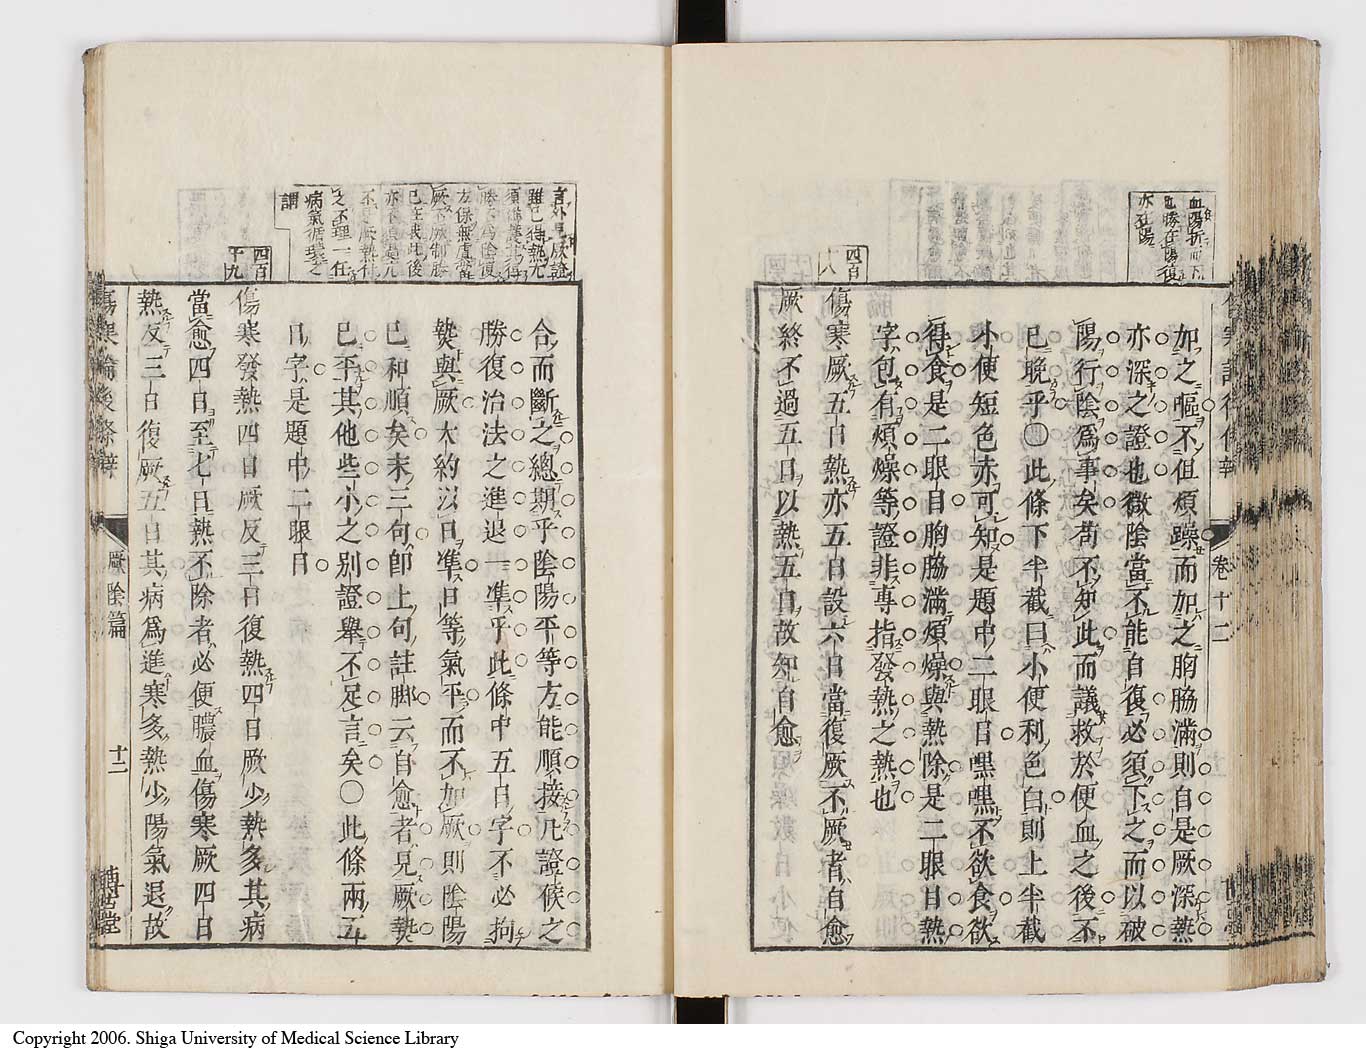 加之嘔不但煩躁而加之胸脇滿則自是厥深熱
亦深之證也微陰當不能自復必須下之而以破
陽行陰爲事矣苟不知此而議救於便血之後不
已晚乎○此條下半截曰小便利色白則上半截
小便短色赤可知是題中二眼目嘿嘿不欲食欲
得食是二眼目胸脇滿煩燥與熱除是二眼目熱
字包有煩燥等證非專指發熱之熱也
四百
十八
傷寒厥五日熱亦五日設六日當復厥不厥者自愈
厥終不過五日以熱五日故知自愈
卷十二
合而斷之總期乎陰陽平等方能順接凡證候之
勝復治法之進退一準乎此條中五日字不必拘
熱與厥大約以日準日等氣平而不加厥則陰陽
已和順矣末三句卽上句註脚云自愈者見厥熱
已平其他些小之別證舉不足言矣○此條兩五
日字是題中二眼目
四百
十九
傷寒發熱四日厥反三日復熱四日厥少熱多其病
當愈四日至七日熱不除者必便膿血傷寒厥四日
熱反三日復厥五日其病爲進寒多熱少陽氣退故
傷寒論後條辨
厥陰篇
十二
Copyright 2006. Shiga University of Medical Science Library